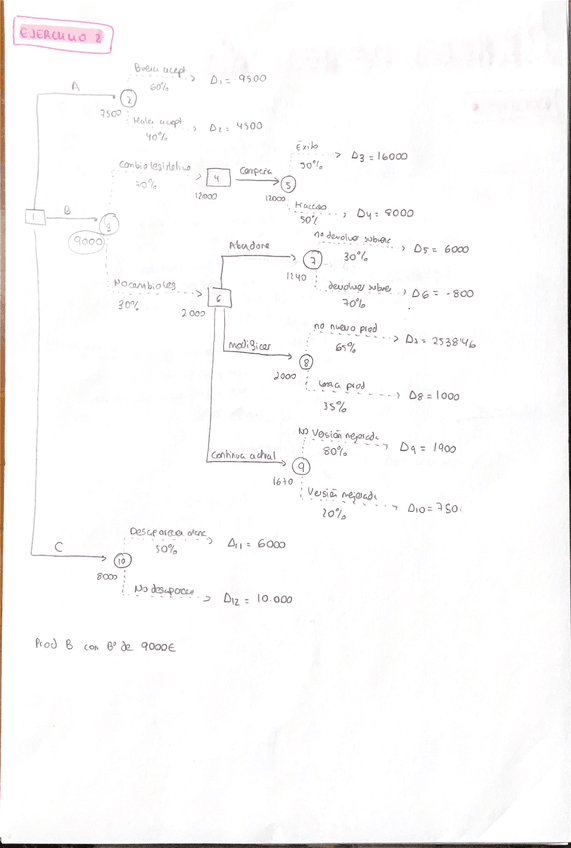 EJERCICIO 2
Buena acept
A
60%
D1 = 9500
2
7500
Mala acept
40%
D2 = 4500
Cambio legislativo
70%
4
12000
Campaña
5
12000
Éxito
50%
D3 = 16000
Fracaso
50%
D4 = 8000
1
B
3
9000
Abandona
7
1240
no devolver subvenc
30%
D5 = 6000
devolver subve
70%
D6 = -800
No cambio leg
30%
6
2000
modificar
8
2000
no nuevo prod
65%
D7 = 2538'46
lanza prod
35%
D8 = 1000
Continua actual
9
1670
No Versión mejorada
80%
D9 = 1900
Versión mejorada
20%
D10 = 750
C
10
8000
Desaparezca
50%
D11 = 6000
No desaparece
D12 = 10.000
Prod B con Bº de 9000€